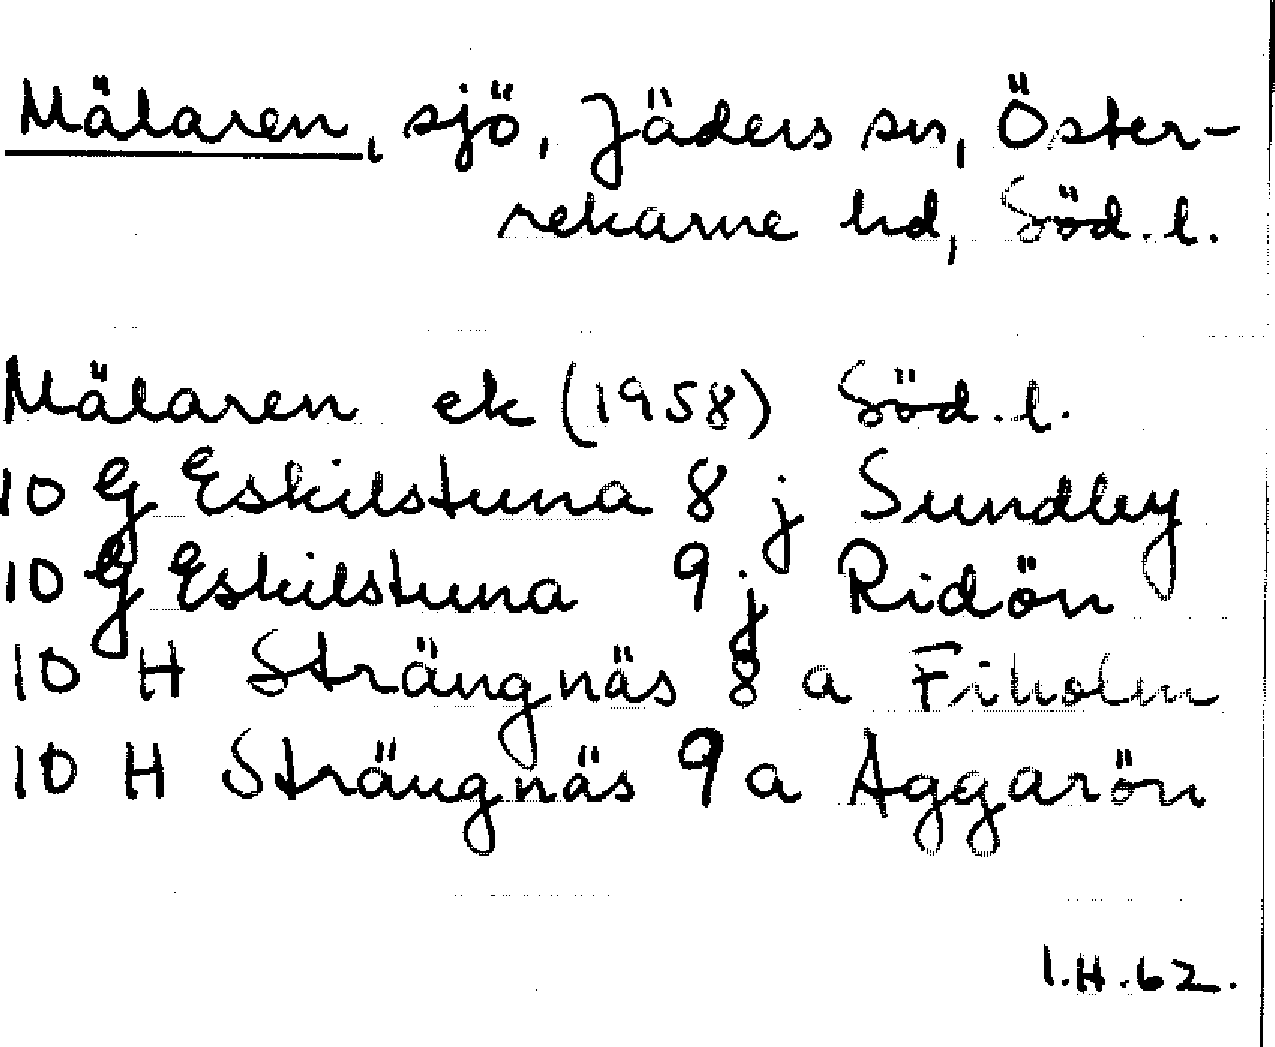 Mälaren, sjö, Jäders sn, Öster-
rekarne hd, Söd. l.
Mälaren ek (1958) Söd. l.
10 G Eskilstuna 8 j Sundby
10 G Eskilstuna 9 j Ridön
10 H Strängnäs 8 a Fiholm
10 H Strängnäs 9 a Aggarön
I.H.62.